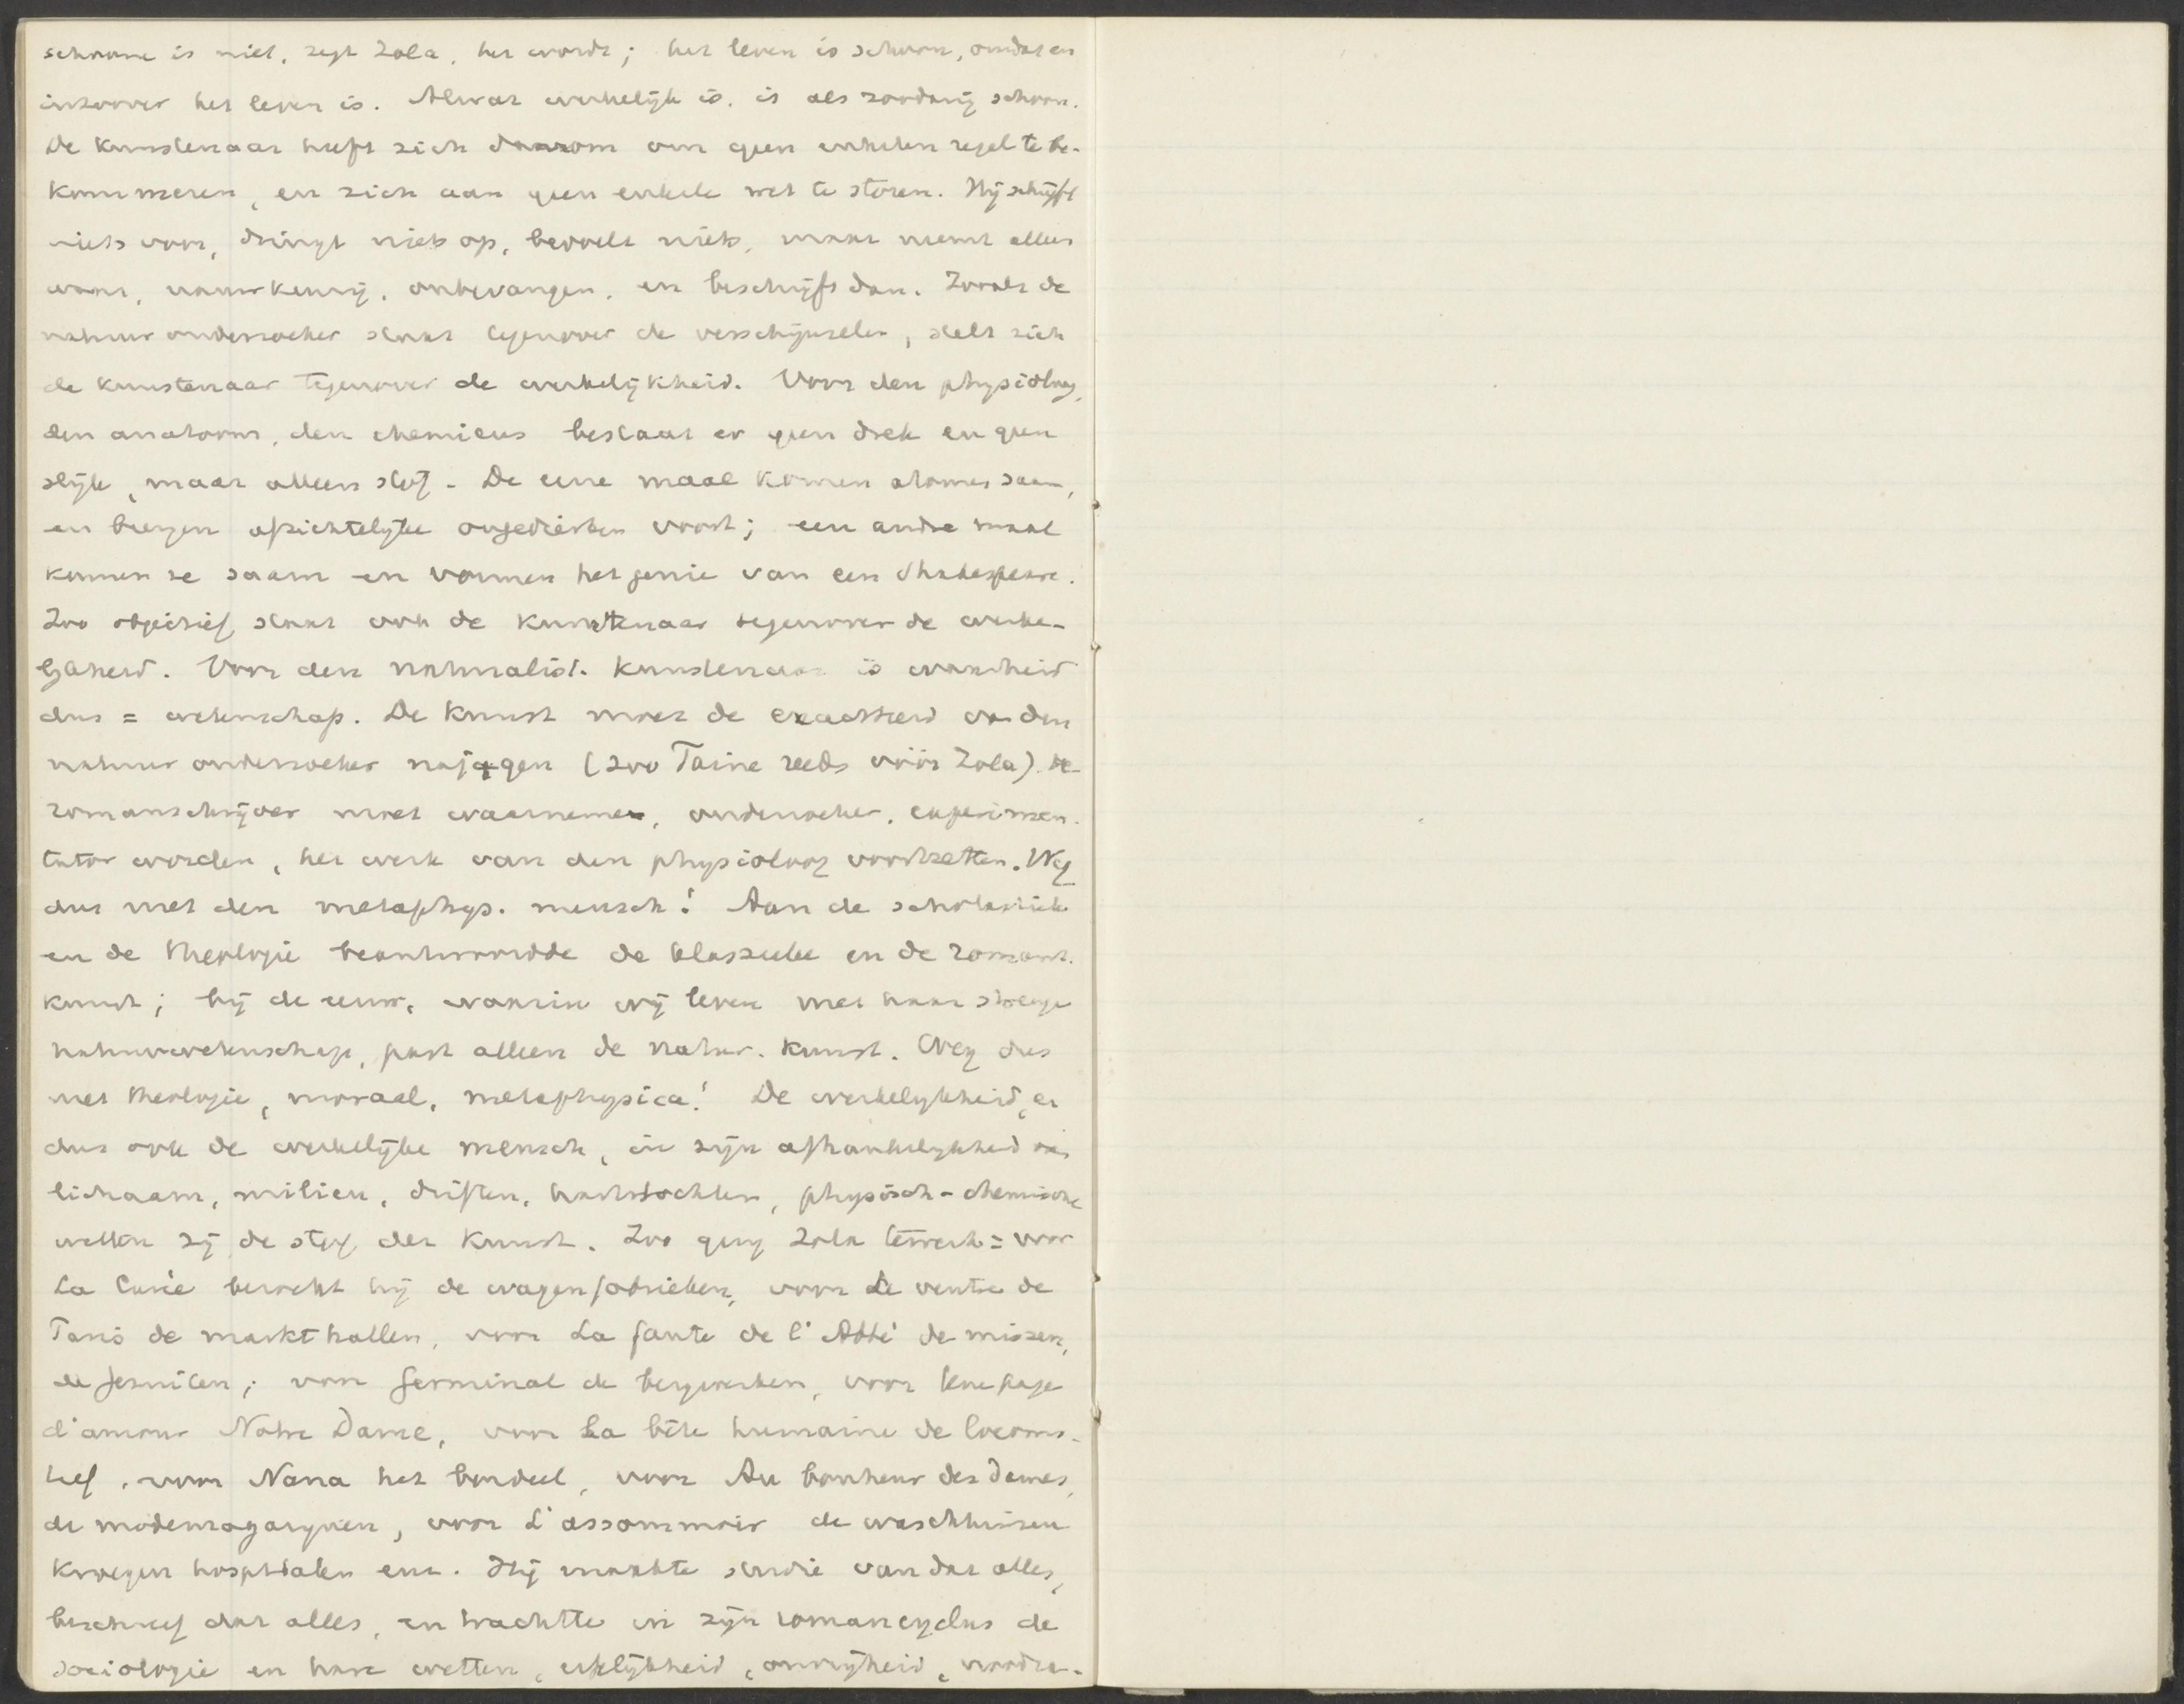 schoone is niet, zegt Zola, het wordt; het leven is schoon, omdat en
inzoover het leven is. Alwat werkelijk is, is als zoodanig schoon.
De kunstenaar heeft zich daarom om geen enkelen regel te be-
kommeren, en zich aan geen enkele wet te storen. Hij schrijft
niets voor, dringt niets op, beveelt niets, maar neemt alles
waar, nauwkeurig, onbevangen, en beschrijft dan. Zooals de
natuuronderzoeker staat tegenover de verschijnselen, stelt zich
de kunstenaar tegenover de werkelijkheid. Voor den physioloog,
den anatoom, den chemicus bestaat er geen drek en geen
slijk, maar alleen stof. De eene maal komen atomen saam,
en brengen afzichtelijke ongedierten voort; een andre maal
komen ze saam en vormen het genie van een Shakespeare.
Zoo objectief staat ook de kunstenaar tegenover de werke-
lijkheid. Voor den naturalist. kunstenaar is waarheid
dus = wetenschap. De kunst moet de exactheid van den
natuuronderzoeker najagen (zoo Taine reeds vóór Zola). De
romanschrijver moet waarnemer, onderzoeker, experimen-
tator worden, het werk van den physioloog voortzetten. Weg
dus met den metaphys. mensch! Aan de scholastiek
en de theologie beantwoordde de klassieke en de romant.
kunst; bij de eeuw, waarin wij leven met haar strenge
natuurwetenschap, past alleen de natur. kunst. Weg dus
met theologie, moraal, metaphysica! De werkelijkheid, en
dus ook de werkelijke mensch, in zijn afhankelijkheid van
lichaam, milieu, driften, hartstochten, physisch-chemische
wetten zij de stof der kunst. Zoo ging Zola te werk = voor
La Curée bezocht hij de wagenfabrieken, voor Le ventre de
Paris de markthallen, voor La faute de l'Abbé de missen,
de Jesuiten; voor Germinal de bergwerken, voor Une page
d'amour Notre Dame, voor La bête humaine de locomo-
tief, voor Nana het bordeel, voor Au bonheur des Dames,
de modemagazijnen, voor L'assommoir de waschhuizen
kroegen hospitalen enz. Hij maakte studie van dat alles,
beschreef dat alles, en trachtte in zijn romancyclus de
sociologie en hare wetten, erfelijkheid, onvrijheid, noodza-